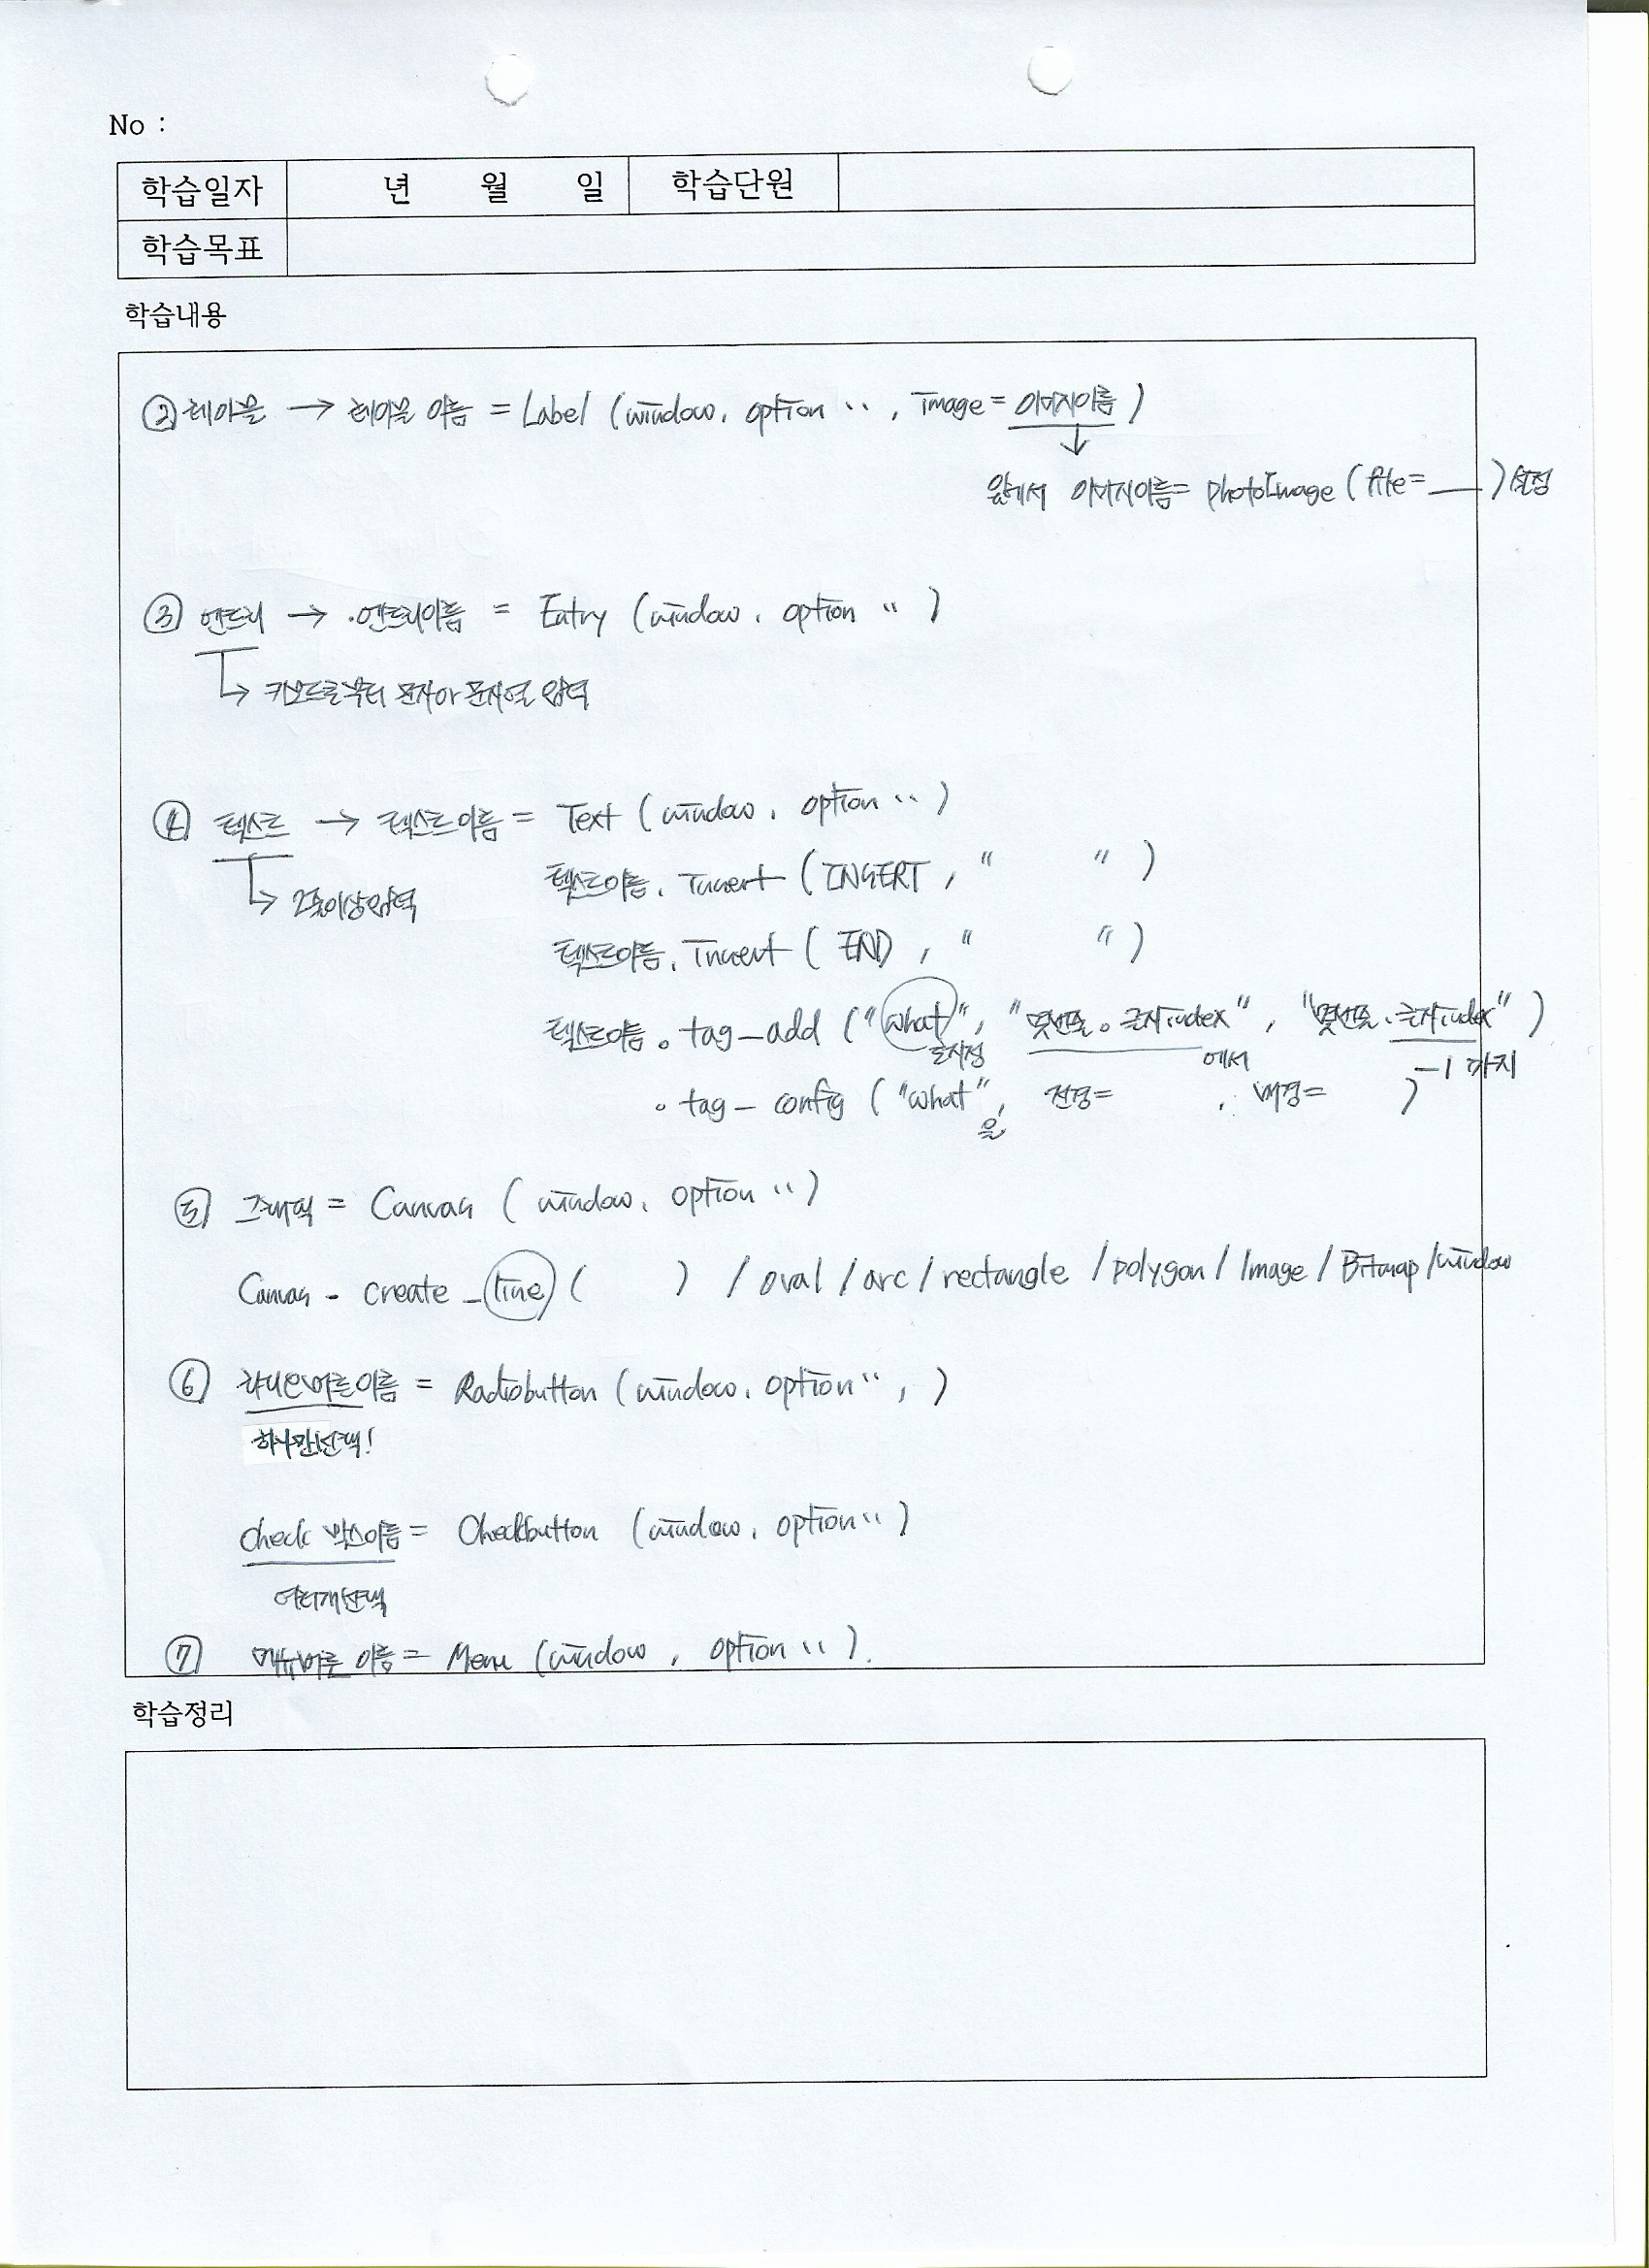 No :
학습일자 년 월 일 학습단원
학습목표
학습내용
② 레이블 → 레이블 이름 = Label (window, option ‥ , image = 이미지이름 )
↓
앞에서 이미지이름 = PhotoImage ( file = ___ ) 설정
③ 엔트리 → 엔트리이름 = Entry (window, option ‥ )
↳ 키보드로부터 문자나 문자열 입력
④ 텍스트 → 텍스트이름 = Text ( window, option ‥ )
텍스트이름. Insert ( INSERT , " " )
↳ 2줄이상입력
텍스트이름. Insert ( END , " " )
텍스트이름. tag_add ( "what", "몇번째줄. 글자index" , "몇번째줄. 글자index" )
를지정 에서 -1 까지
. tag_config ( "what", 전경= , 배경= )
을
⑤ 그래픽 = Canvas ( window, option ‥ )
Canvas - create _line ( ) / oval / arc / rectangle / polygon / Image / Bitmap / window
⑥ 라디오버튼이름 = Radiobutton ( window, option ‥, )
하나만선택!
check 박스이름 = Checkbutton (window, option ‥ )
여러개선택
⑦ 메뉴버튼 이름 = Menu (window , option ‥ ).
학습정리